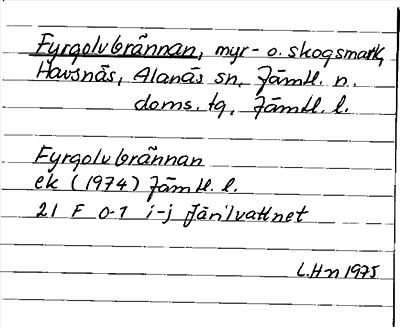 Fyrgolvbrännan, myr- o. skogsmark,
Havsnäs, Alanäs sn, Jämtl. n.
doms. tg, Jämtl. l.
Fyrgolvbrännan
ek (1974) Jämtl. l.
21 F 0-1 i-j Järilvattnet
L.Hn 1975